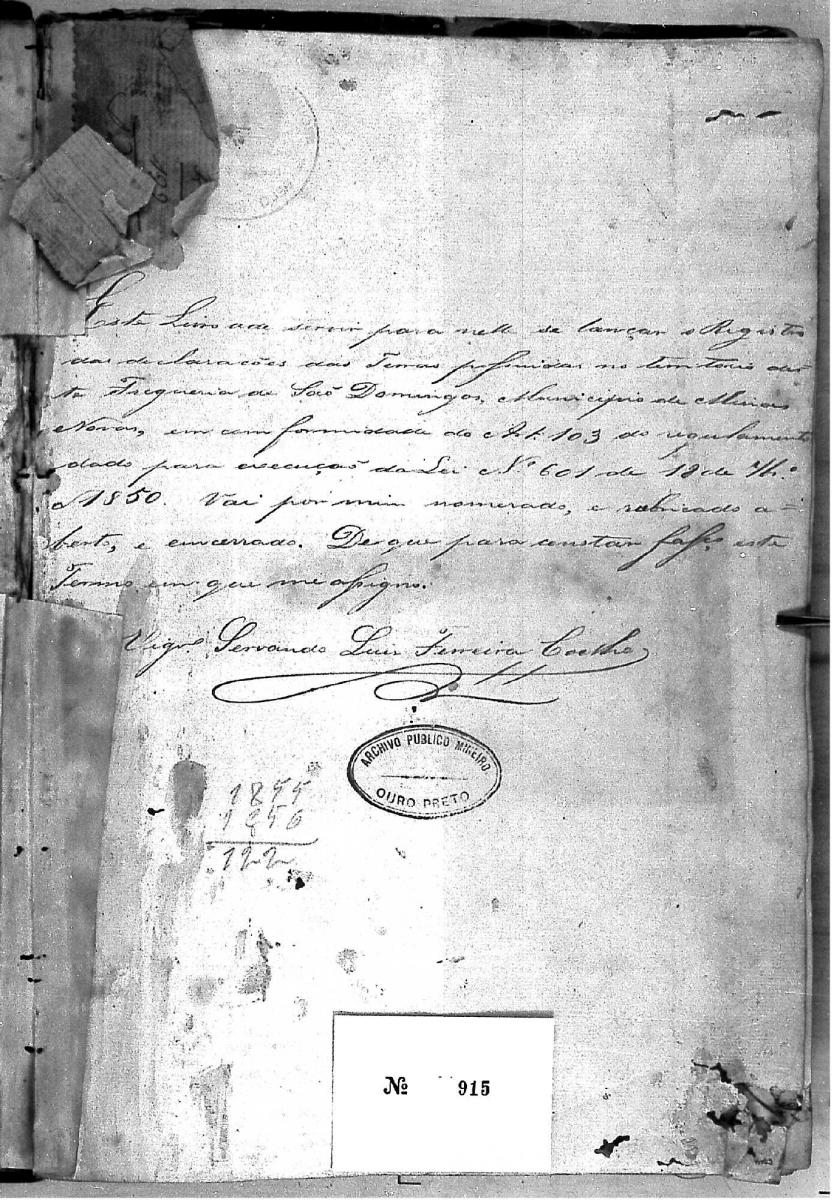 Este Livro ade servir para nelle se lançar o Registro
das declarações das Terras possuidas no territorio des-
ta Freguezia de São Domingos, Municipio de Minas
Novas, em comformidade do Art. 103 do regulamento
dado para execução da Lei Nº 601 de 18 de 7bro
1850. Vai por mim nomerado, e rubricado a=
berto, e emcerrado. De que para constar fasso este
Termo em que me assigno.
Vigro Servando Luis Ferreira Coelho
ARCHIVO PUBLICO MINEIRO
OURO PRETO
1855
1856
122
Nº 915